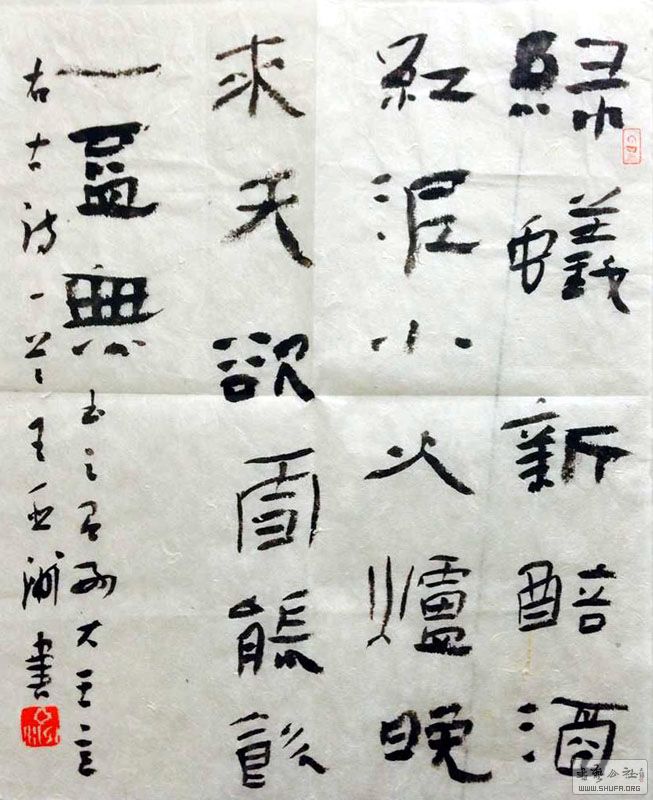 綠蟻新醅酒
紅泥小火爐晚
来天欲雪能飲
一盃無
右古詩一首王亞洲書
書藝公社
WWW.SHUFA.ORG